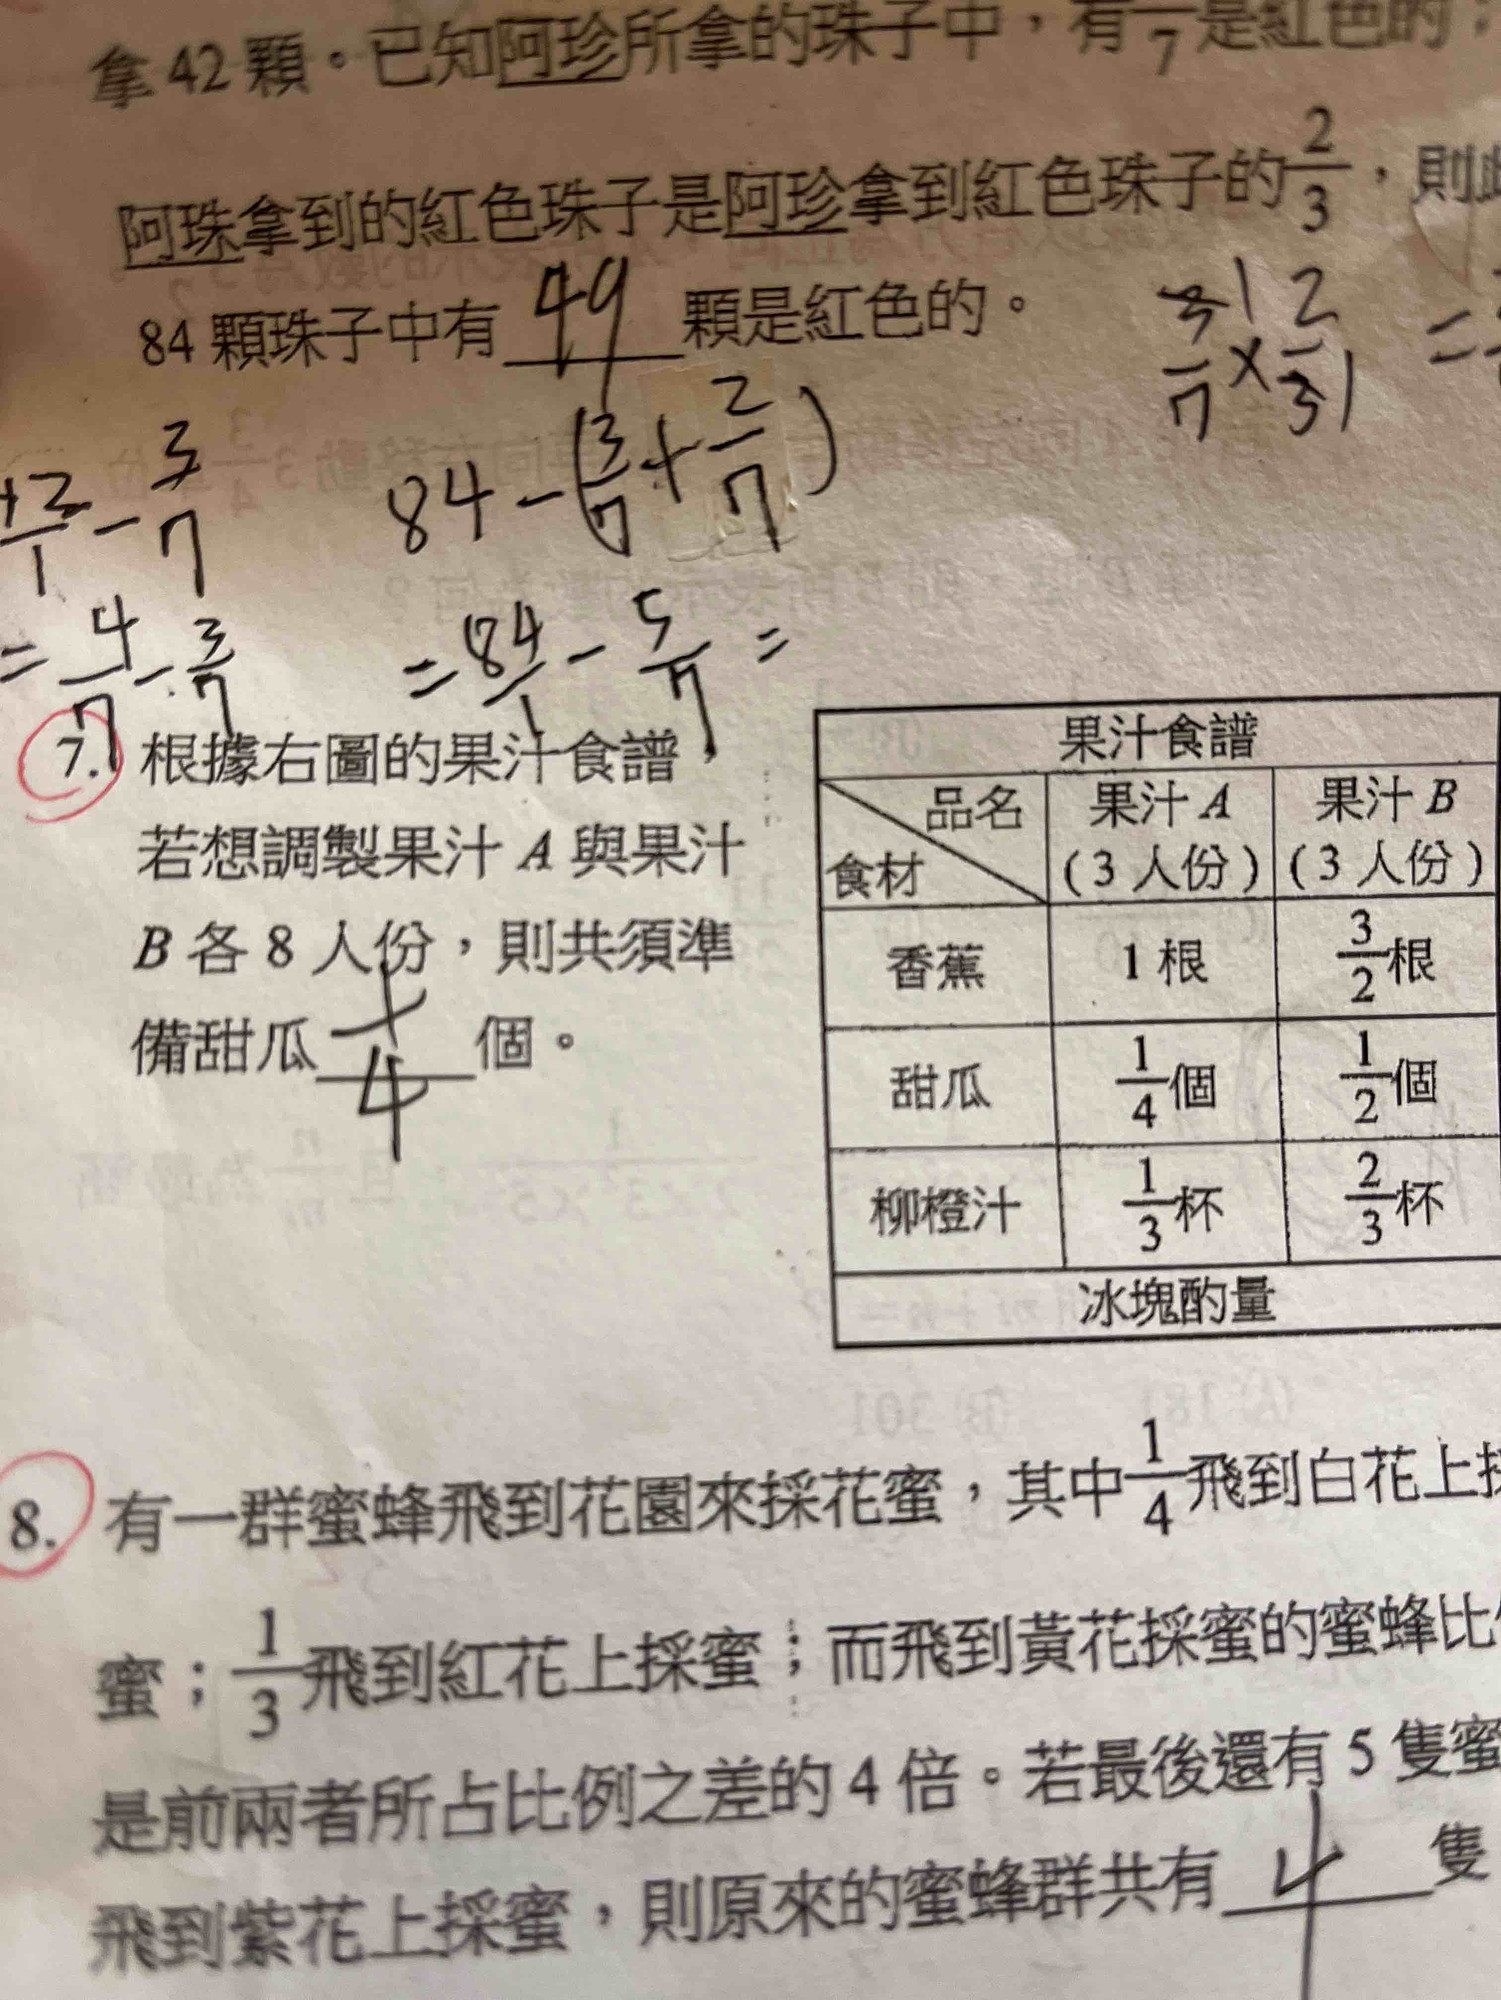 拿42顆。已知阿珍所拿的珠子中，有 /7 是紅色的；
阿珠拿到的紅色珠子是阿珍拿到紅色珠子的2/3，則此
84顆珠子中有 49 顆是紅色的。
3/7 × 2/3 =
- 3/7
84 - (3/7 + 2/7)
= 4/7 - 3/7
= 84/1 - 5/7 =
7. 根據右圖的果汁食譜，
若想調製果汁A與果汁
B各8人份，則共須準
備甜瓜 1/4 個。
果汁食譜
品名 果汁A 果汁B
食材 (3人份) (3人份)
香蕉 1根 3/2根
甜瓜 1/4個 1/2個
柳橙汁 1/3杯 2/3杯
冰塊酌量
8. 有一群蜜蜂飛到花園來採花蜜，其中1/4飛到白花上採
蜜；1/3飛到紅花上採蜜；而飛到黃花採蜜的蜜蜂比
是前兩者所占比例之差的4倍。若最後還有5隻蜜
飛到紫花上採蜜，則原來的蜜蜂群共有 隻